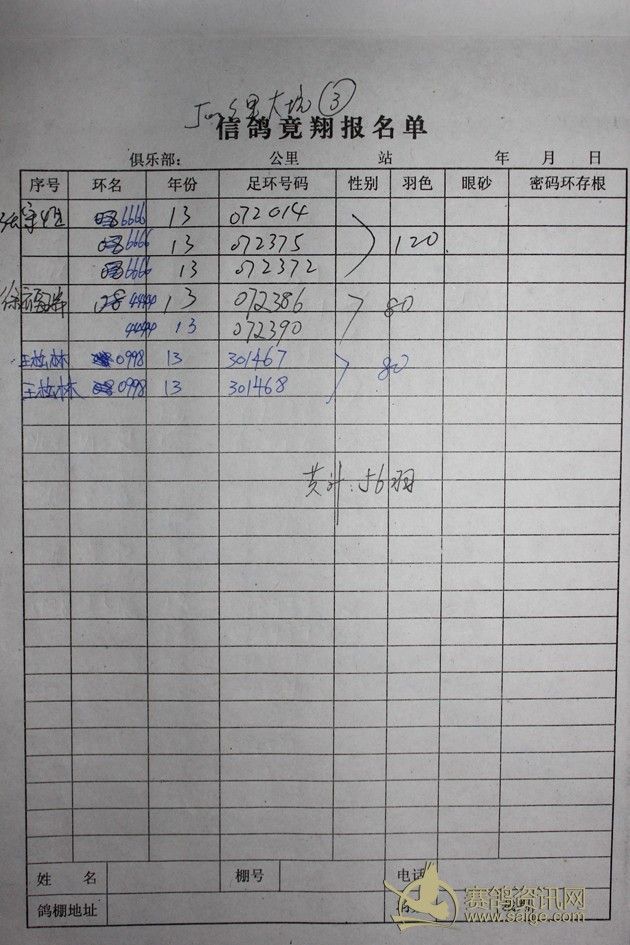 大坑 ③
信鸽竟翔报名单
俱乐部： 公里 站 年 月 日
序号 环名 年份 足环号码 性别 羽色 眼砂 密码环存根
6666 13 072014
6666 13 072375 120
6666 13 072372
4444 13 072386 80
4444 13 072390
王松林 0998 13 301467 80
王松林 0998 13 301468
共计：56羽
姓 名 棚号 电话
鸽棚地址
赛鸽资讯网
www.saige.com